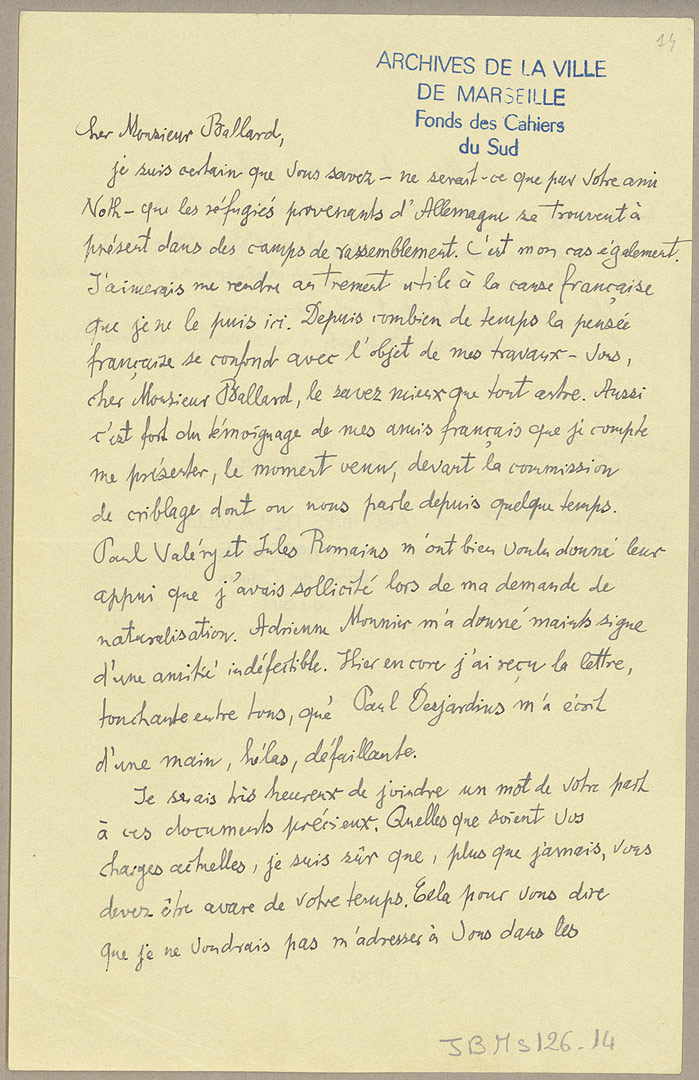 14
ARCHIVES DE LA VILLE
DE MARSEILLE
Fonds des Cahiers
du Sud
Cher Monsieur Ballard,
je suis certain que vous savez – ne serait-ce que par votre ami
Noth – que les réfugiés provenants d'Allemagne se trouvent à
présent dans des camps de rassemblement. C'est mon cas également.
J'aimerais me rendre autrement utile à la cause française
que je ne le puis ici. Depuis combien de temps la pensée
française se confond avec l'objet de mes travaux – vous,
cher Monsieur Ballard, le savez mieux que tout autre. Aussi
c'est fort du témoignage de mes amis français que je compte
me présenter, le moment venu, devant la commission
de criblage dont on nous parle depuis quelque temps.
Paul Valéry et Jules Romains m'ont bien voulu donné leur
appui que j'avais sollicité lors de ma demande de
naturalisation. Adrienne Monnier m'a donné maints signe
d'une amitié indéfectible. Hier encore j'ai reçu la lettre,
touchante entre tous, que Paul Desjardins m'a écrit
d'une main, hélas, défaillante.
Je serais très heureux de joindre un mot de votre part
à ces documents précieux. Quelles que soient vos
charges actuelles, je suis sûr que, plus que jamais, vous
devez être avare de votre temps. Cela pour vous dire
que je ne voudrais pas m'adresser à vous dans les
JBMs126-14